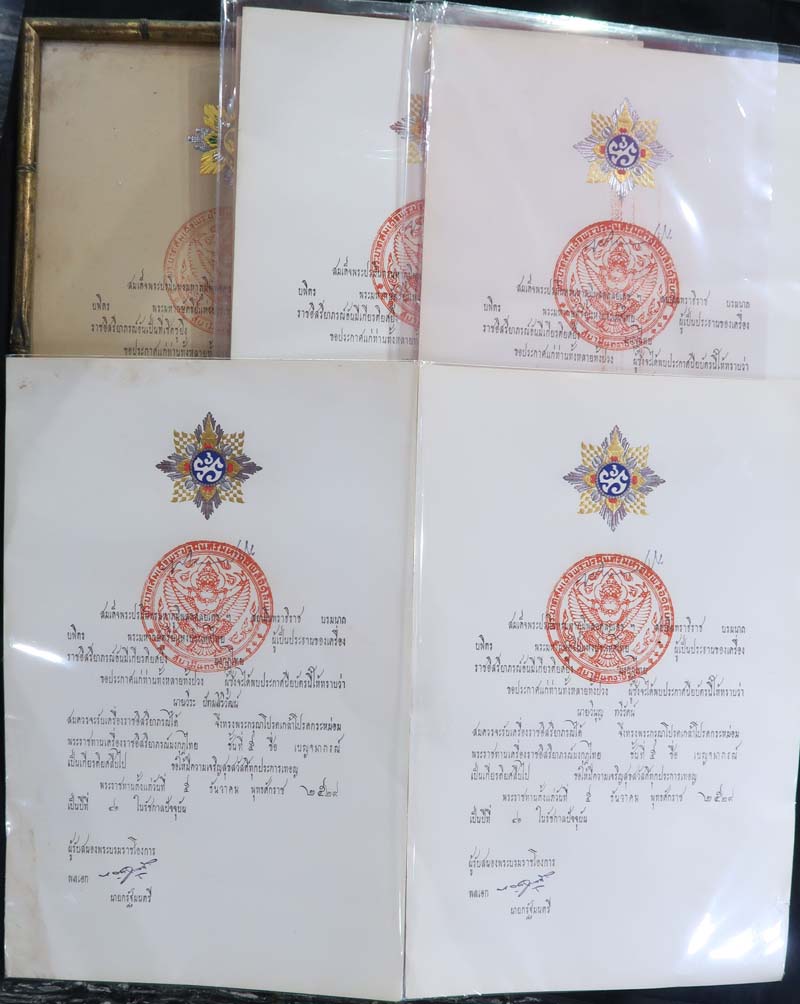 สมเด็จพระปรมินทรมหา
บพิตร พระมหากษัตริย์แห่ง
ราชอิสริยาภรณ์อันเป็นที่เชิดชูยิ่ง
ขอประกาศแก่ท่านทั้งหลาย
สมเด็จพระปรมินทรมหา
บพิตร พระมหากษัตริย์แห่ง
ราชอิสริยาภรณ์อันมีเกียรติยศยิ่ง
ขอประกาศแก่ท่านทั้งหลายทั้งปวง
สมเด็จพระปรมินทรมหาภูมิพลอดุลยเดช ฯ สยามินทราธิราช บรมนาถ
บพิตร พระมหากษัตริย์แห่งประเทศไทย ผู้เป็นประธานของเครื่อง
ราชอิสริยาภรณ์อันมีเกียรติยศยิ่ง มงกุฎไทย
ขอประกาศแก่ท่านทั้งหลายทั้งปวง ผู้ซึ่งจะได้พบประกาศนียบัตรนี้ให้ทราบว่า
สมเด็จพระปรมินทรมหาภูมิพลอดุลยเดช ฯ สยามินทราธิราช บรมนาถ
บพิตร พระมหากษัตริย์แห่งประเทศไทย ผู้เป็นประธานของเครื่อง
ราชอิสริยาภรณ์อันมีเกียรติยศยิ่ง มงกุฎไทย
ขอประกาศแก่ท่านทั้งหลายทั้งปวง ผู้ซึ่งจะได้พบประกาศนียบัตรนี้ให้ทราบว่า
นายวีระ ปัทมสิริวัฒน์
สมควรจะรับเครื่องราชอิสริยาภรณ์ได้ จึงทรงพระกรุณาโปรดเกล้าโปรดกระหม่อม
พระราชทานเครื่องราชอิสริยาภรณ์มงกุฎไทย ชั้นที่ ๕ ชื่อ เบญจมาภรณ์
เป็นเกียรติยศสืบไป ขอให้มีความเจริญสุขสวัสดิ์ทุกประการเทอญ
พระราชทานตั้งแต่วันที่ ๕ ธันวาคม พุทธศักราช ๒๕๒๙
เป็นปีที่ ๔๑ ในรัชกาลปัจจุบัน
ผู้รับสนองพระบรมราชโองการ
พลเอก
นายกรัฐมนตรี
สมเด็จพระปรมินทรมหาภูมิพลอดุลยเดช ฯ สยามินทราธิราช บรมนาถ
บพิตร พระมหากษัตริย์แห่งประเทศไทย ผู้เป็นประธานของเครื่อง
ราชอิสริยาภรณ์อันมีเกียรติยศยิ่ง มงกุฎไทย
ขอประกาศแก่ท่านทั้งหลายทั้งปวง ผู้ซึ่งจะได้พบประกาศนียบัตรนี้ให้ทราบว่า
สมควรจะรับเครื่องราชอิสริยาภรณ์ได้ จึงทรงพระกรุณาโปรดเกล้าโปรดกระหม่อม
พระราชทานเครื่องราชอิสริยาภรณ์มงกุฎไทย ชั้นที่ ๕ ชื่อ เบญจมาภรณ์
เป็นเกียรติยศสืบไป ขอให้มีความเจริญสุขสวัสดิ์ทุกประการเทอญ
พระราชทานตั้งแต่วันที่ ๕ ธันวาคม พุทธศักราช ๒๕๒๙
เป็นปีที่ ๔๑ ในรัชกาลปัจจุบัน
ผู้รับสนองพระบรมราชโองการ
พลเอก
นายกรัฐมนตรี